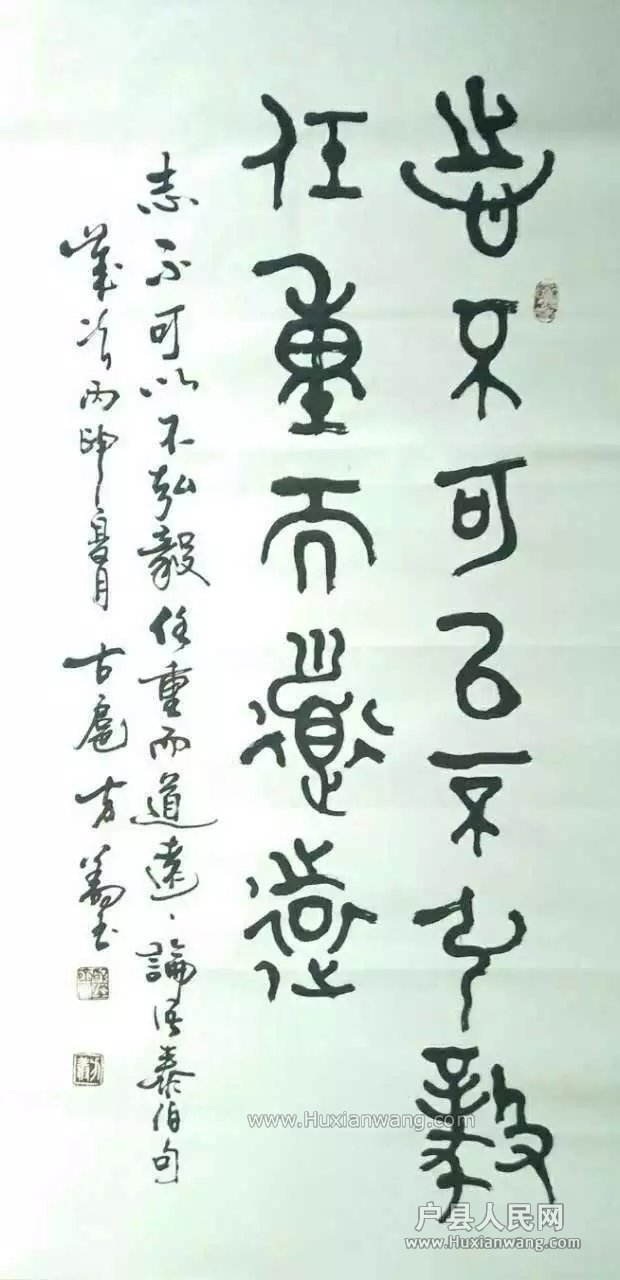 志不可以不弘毅
任重而道遠
志不可以不弘毅任重而道遠、論語泰伯句
歲次丙申夏月古扈
户县人民网
www.Huxianwang.com
www.Huxianwang.com